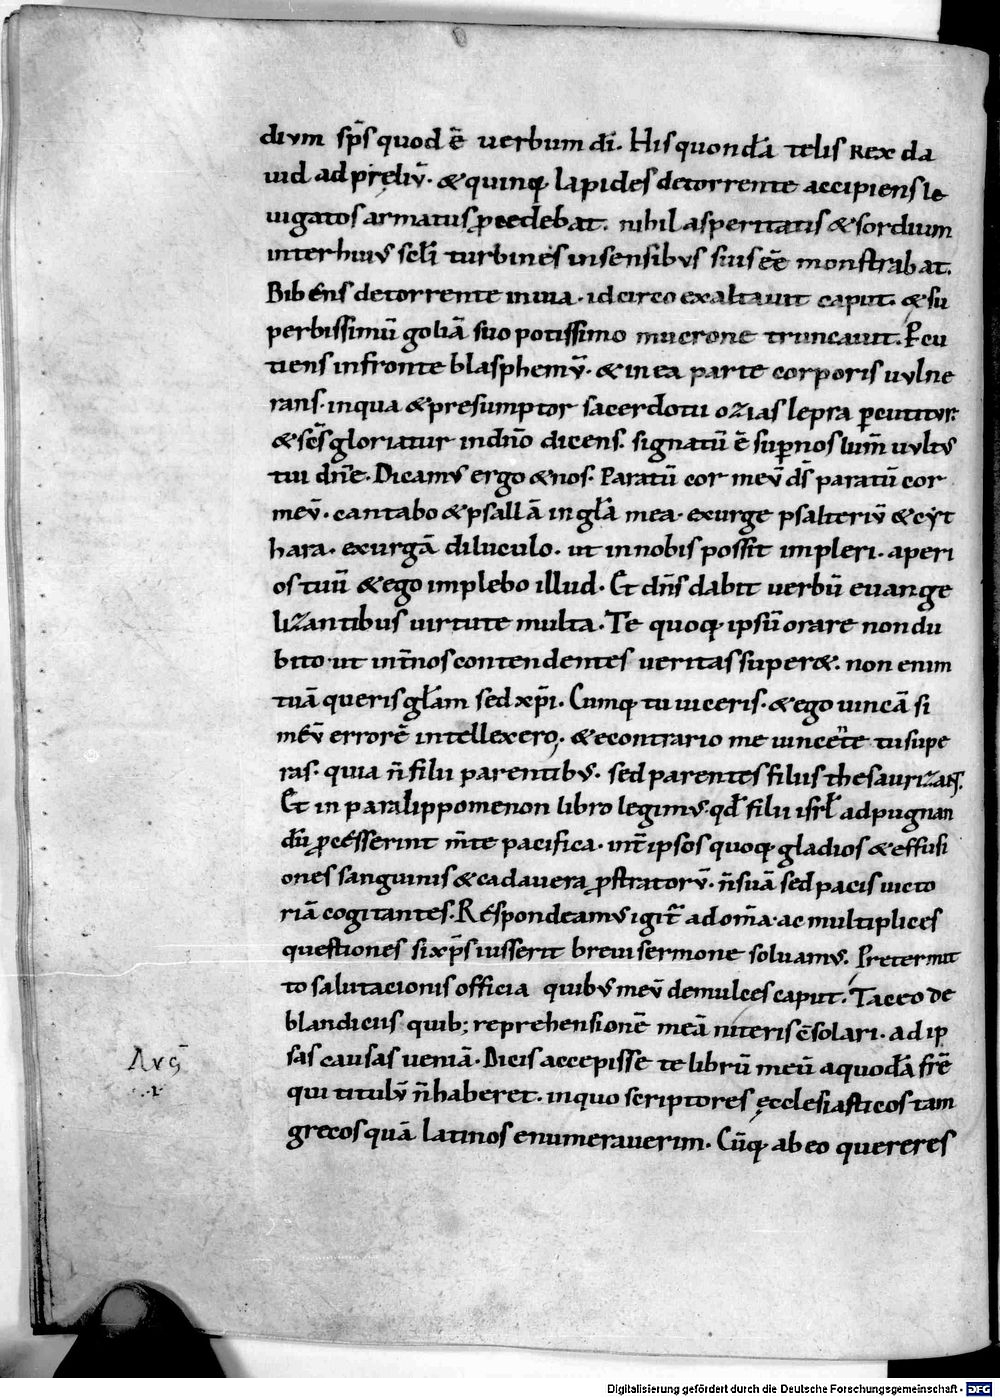 divm sp̄s quod ē uerbum dī. His quondā telis Rex da
uid ad pręliv̄. & quinq; lapides detorrente accipiens le
uigatos armatus p̄cedebat. nihil asperitatis & sordium
inter huiꝰ scłi turbines insensibvs suis eē monstrabat.
Bibens detorrente inuia. idcirco exaltauit caput. & su
perbissimū goliā suo potissimo mucrone truncauit. P̲cu
tiens infronte blasphemv̄. & in ea parte corporis uvlne
rans. inqua & presumptor sacerdotii ozias lepra p̲cutitvr.
& sc̄s gloriatur indn̄o dicens. signatū ē sup̲ nos lum̄ uvltꝰ
tui dn̄e. Dicamꝰ ergo & nos. Paratū cor mev̄ ds̄ paratū cor
mev̄. cantabo & psallā in gła mea. exurge psalteriv̄ & cyt
hara. exurgā diluculo. ut innobis possit impleri. aperi
os tuū & ego implebo illud. Et dn̄s dabit uerbū euange
lizantibus uirtute multa. Te quoq; ipsū orare nondu
bito. ut int̄ nos contendentes ueritas super&. non enim
tuā queris głam sed xp̄i. Cumq; tu uiceris. & ego uincā si
mev̄ errorē intellexero. & econtrario me uincente tu supe
ras. quia n̄ filii parentibꝰ. sed parentes filiis thesaurizant.
Et in paralippomenon libro legimꝰ. qd̄ filii isrł ad pugnan
dū p̄cesserint m̄te pacifica. int̄ ipsos quoq; gladios & effusi
ones sanguinis & cadauera p̄stratorv̄. n̄ suā sed pacis uicto
riā cogitantes. Respondeamꝰ igit̄ ad om̄a. ac multiplices
questiones si xp̄s iusserit breui sermone soluamꝰ. Pretermit
to salutacionis officia quibꝰ mev̄ demulces caput. Taceo de
blandiciis quib; reprehensionē meā niteris c̄solari. ad ip
sas causas ueniā. Dicis accepisse te librū meū aquodā fr̄e
Avḡ
qui titulv̄ n̄ haberet. inquo scriptores ęcclesiasticos tam
grecos quā latinos enumerauerim. Cūq; ab eo quereres